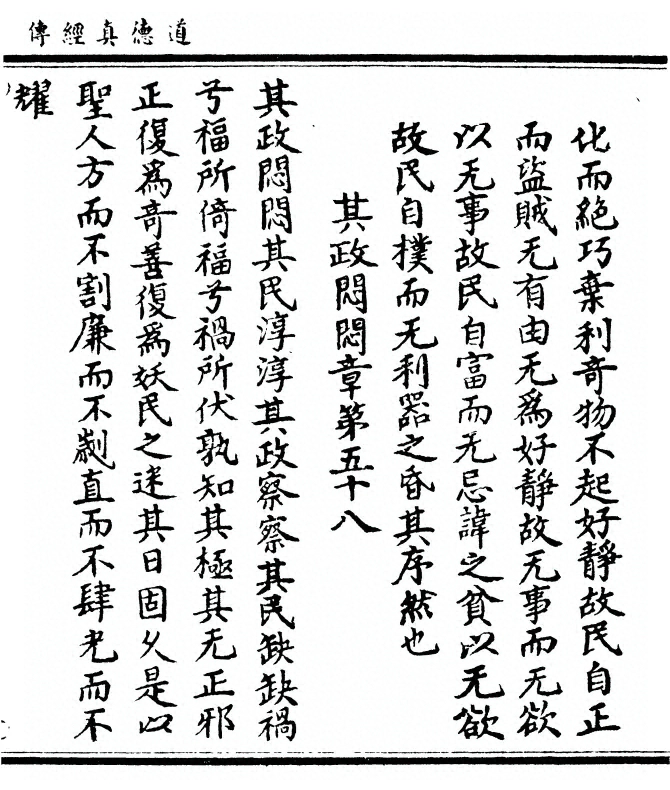 道德真經傳
化而絕巧棄利奇物不起好靜故民自正
而盜賊无有由无為好靜故无事而无欲
以无事故民自富而无忌諱之貧以无欲
故民自樸而无利器之昏其序然也
其政悶悶章第五十八
其政悶悶其民淳淳其政察察其民缺缺禍
兮福所倚福兮禍所伏孰知其極其无正邪
正復為奇善復為妖民之迷其日固久是以
聖人方而不割廉而不劌直而不肆光而不
耀